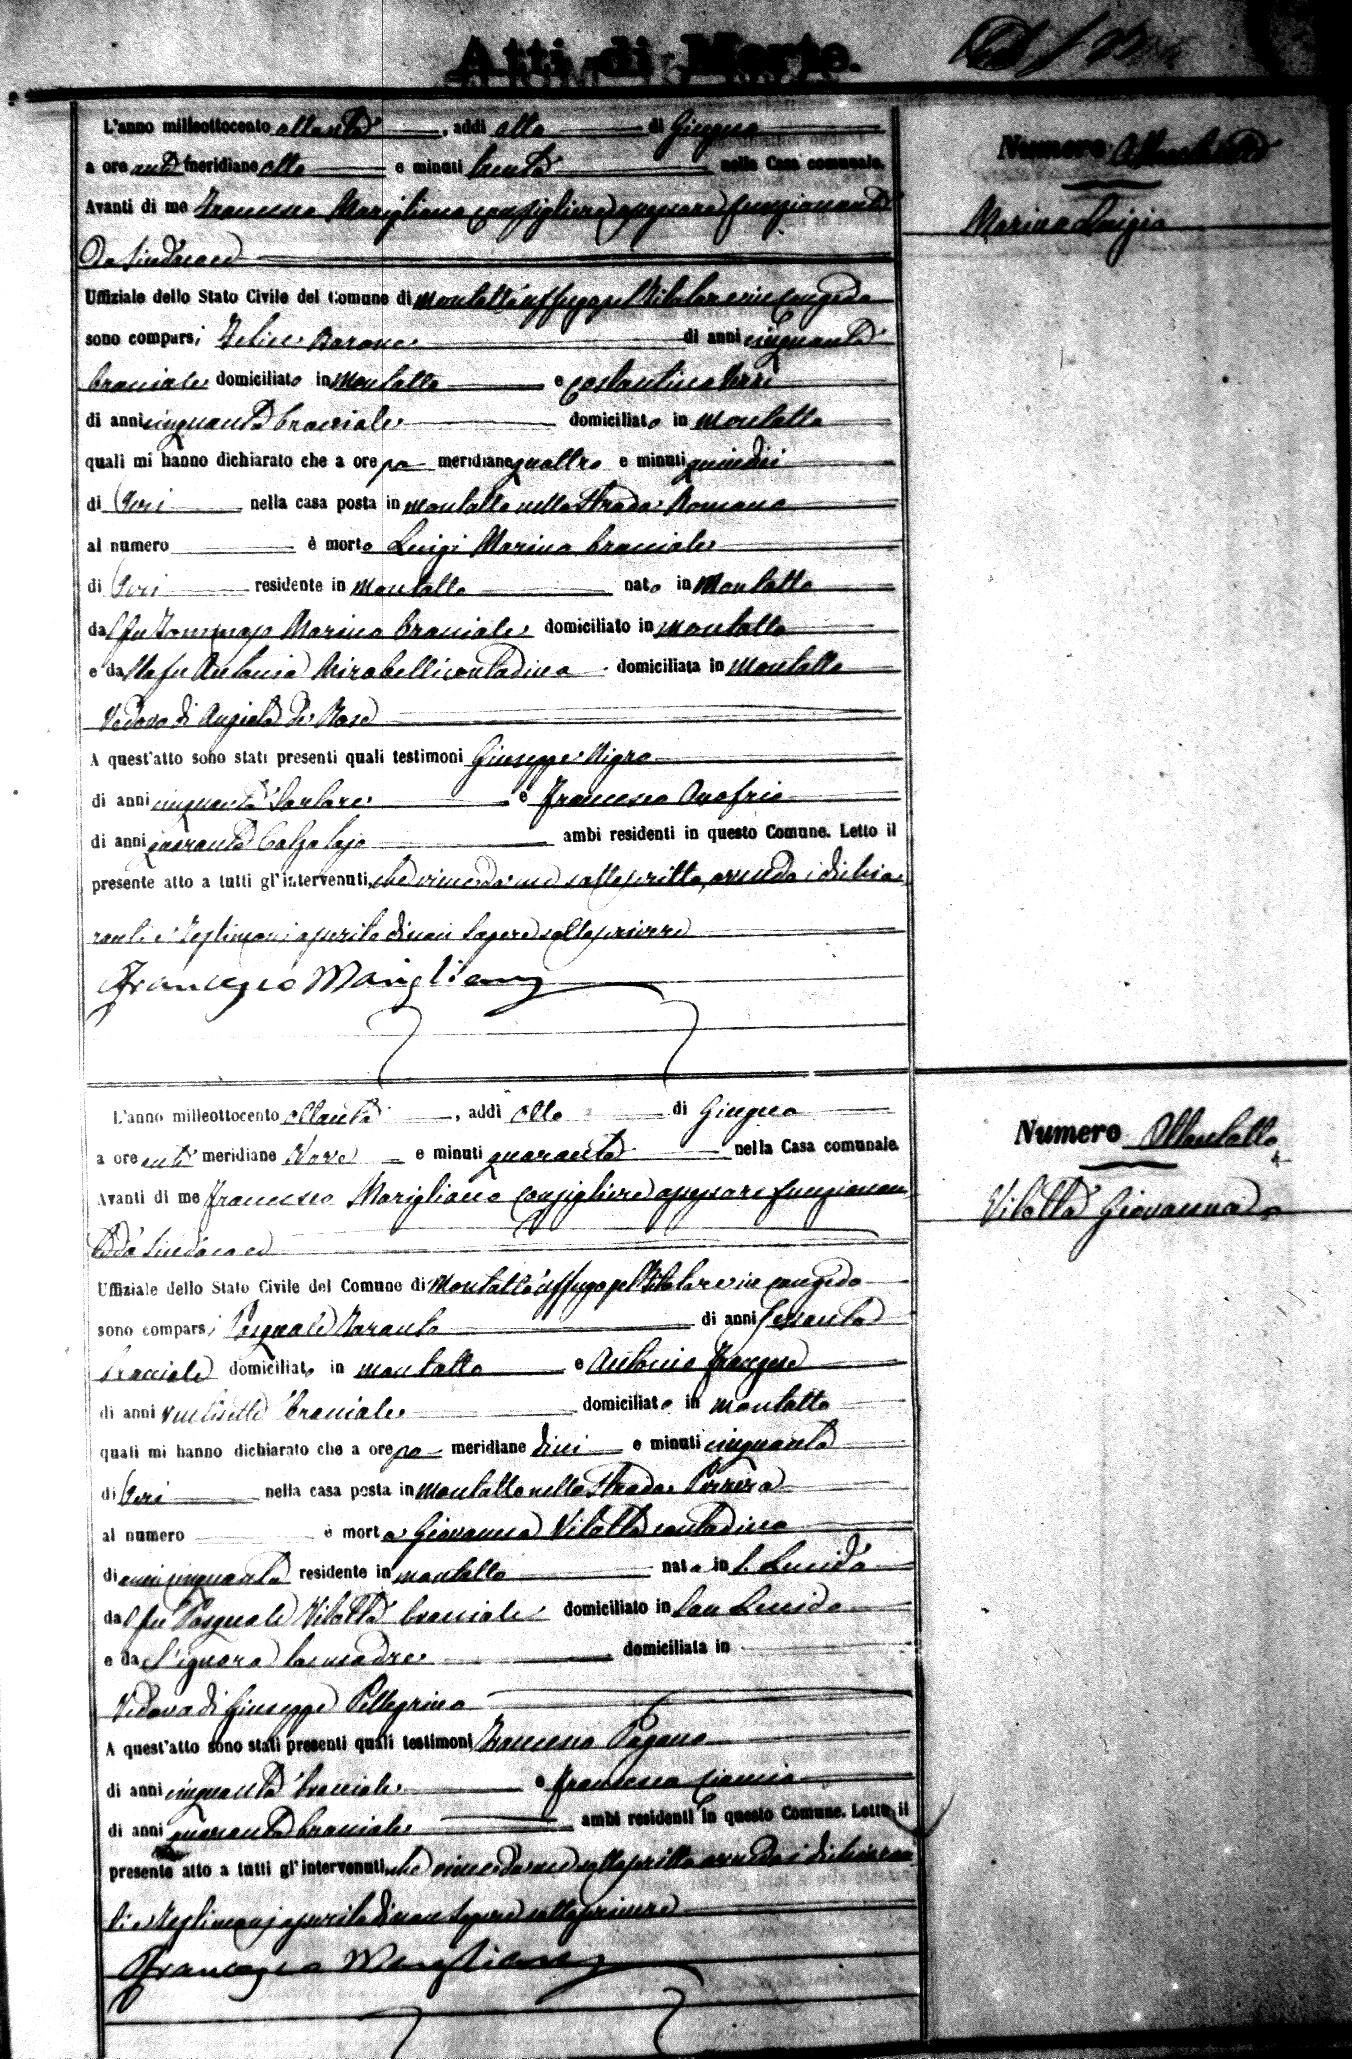 Atti di Morte.
L'anno milleottocento ottanta, addì otto di Giugno
a ore anti meridiane otto e minuti trenta nella Casa comunale.
Avanti di me Francesco Marigliano consigliere assessore funzionante
Da Sindaco ed
Uffiziale dello Stato Civile del Comune di Montalto Uffugo pel Titolare in congedo
sono comparsi Felice Barone di anni cinquanta
bracciale domiciliato in Montalto e Costantino
di anni cinquanta bracciale domiciliato in Montalto
quali mi hanno dichiarato che a ore po meridiane quattro e minuti quindici
di Jeri nella casa posta in Montalto nella Strada Romano
al numero è morto Luigi Marino bracciale
di Jeri residente in Montalto nato in Montalto
dal fu Tommaso Marino bracciale domiciliato in Montalto
e dalla fu Antonia Mirabelli contadina domiciliata in Montalto
Vedovo di Angiola De Rose
A quest'atto sono stati presenti quali testimoni Giuseppe Nigro
di anni cinquanta e Francesco Onofrio
di anni quaranta Calzolajo ambi residenti in questo Comune. Letto il
presente atto a tutti gl'intervenuti, che viene da me sottoscritto, avendo i dichia
ranti e testimoni asserito di non sapere sottoscrivere
Francesco Marigliano
Numero Ottantasette
Marino Luigi
L'anno milleottocento ottanta, addì otto di Giugno
a ore anti meridiane Nove e minuti quaranta nella Casa comunale.
Avanti di me Francesco Marigliano consigliere assessore funzionan
te da Sindaco ed
Uffiziale dello Stato Civile del Comune di Montalto Uffugo pel Titolare in congedo
sono comparsi Pasquale Naranto di anni sessanta
bracciale domiciliato in Montalto e Antonio Francese
di anni ventisette bracciale domiciliato in Montalto
quali mi hanno dichiarato che a ore po meridiane dieci e minuti cinquanta
di Jeri nella casa posta in Montalto nella Strada
al numero è morta Giovanna Vilotta contadina
di anni cinquanta residente in Montalto nata in S. Lucido
dal fu Pasquale Vilotta bracciale domiciliato in San Lucido
e da S'ignora la madre domiciliata in
Vedova di Giuseppe Pellegrino
A quest'atto sono stati presenti quali testimoni Francesco Pagano
di anni cinquanta bracciale e Francesco Ciancio
di anni quaranta bracciale ambi residenti in questo Comune. Letto il
presente atto a tutti gl'intervenuti, che viene da me sottoscritto avendo i dichiaran
ti e testimonj asserito di non sapere sottoscrivere
Francesco Marigliano
Numero Ottantotto
Vilotta Giovanna